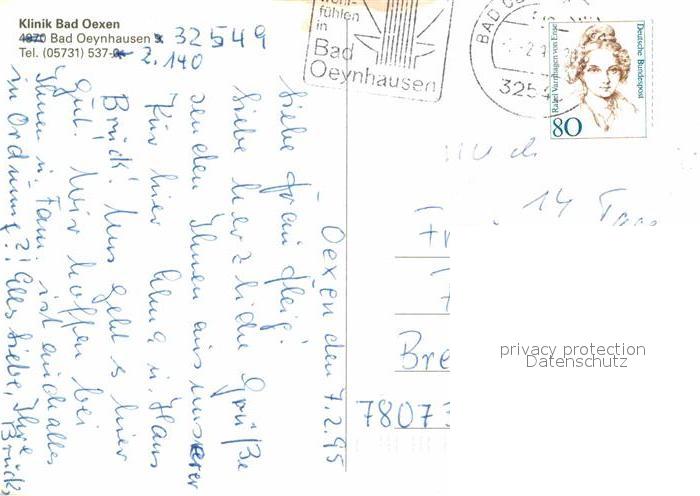 Klinik Bad Oexen
4970 Bad Oeynhausen 9
Tel. (05731) 537-0
32549
2.140
fühlen
in
Bad
Oeynhausen
BAD O
3254
Deutsche Bundespost
Rahel Varnhagen von Ense
80
Oexen den 7.2.95
Liebe Frau
Liebe herzliche Grüße
senden Ihnen aus unserer
Kur hier Alma u. Hans
Brück. Uns geht's hier
gut. Wir hoffen bei
Ihnen u. Fam. ist auch alles
in Ordnung?! Alles Liebe, Ihre
Brück
14 Tage
Fr
Bre
78073
privacy protection
Datenschutz